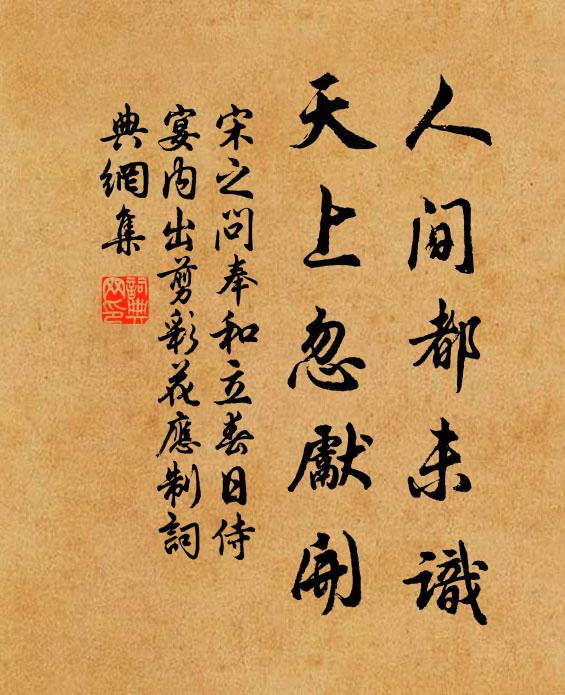 人間都未識
天上忽獻開
宋之問奉和立春日侍
宴内出剪彩花應制詞
典網集
詞典
网印